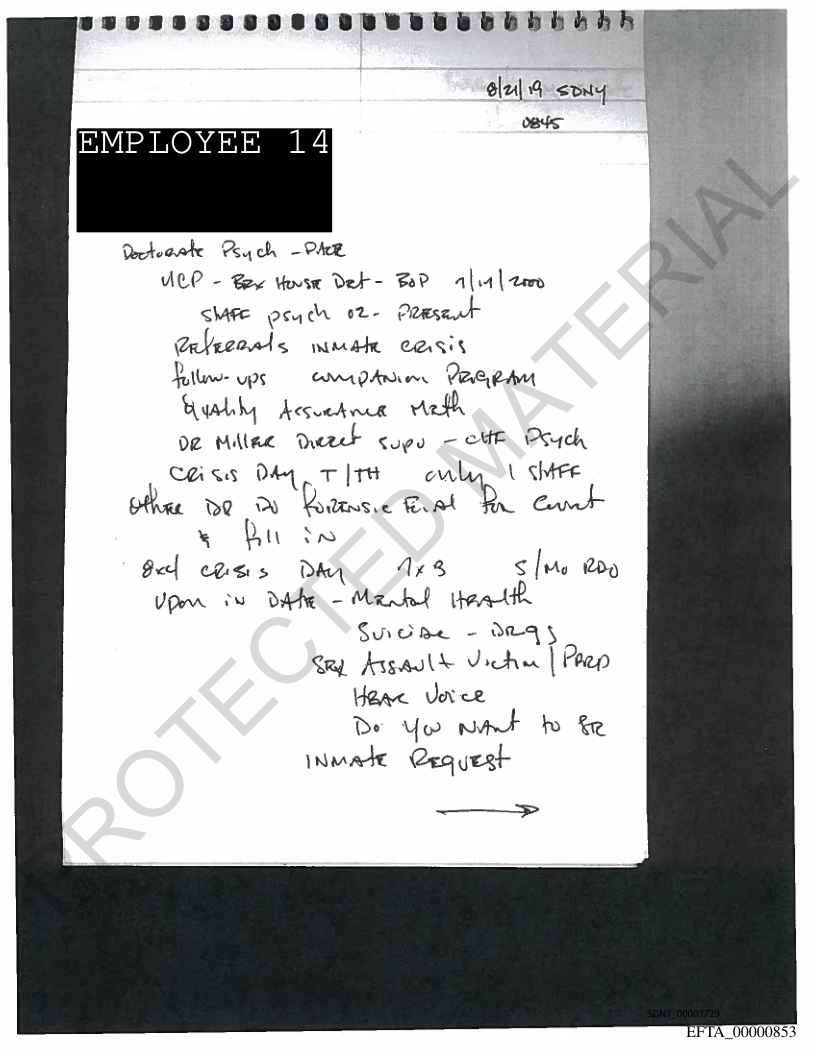 8/21/19 SDNY
0845
EMPLOYEE 14
Doctorate Psych - PACE
- BRX HOUSE Det - BOP 7/1 /2000
STAFF psych 02 - PRESENT
REFERRALS INMATE CRISIS
follow-ups COMPANION PROGRAM
QUALITY ASSURANCE Meth
DR Miller Direct Supv - CHF Psych
CRISIS DAY T/TH only 1 STAFF
Other DR DO FORENSIC EVAL For Court
& fill in
CRISIS DAY 5/Mo RDO
Upon in DATE - Mental HEAlth
Suicide - DRgs
SEX ASSAULT Victim / PRED
HEAR Voice
Do You WANT to
INMATE REQUEST
PROTECTED MATERIAL
SDNY_00007729
EFTA_00000853